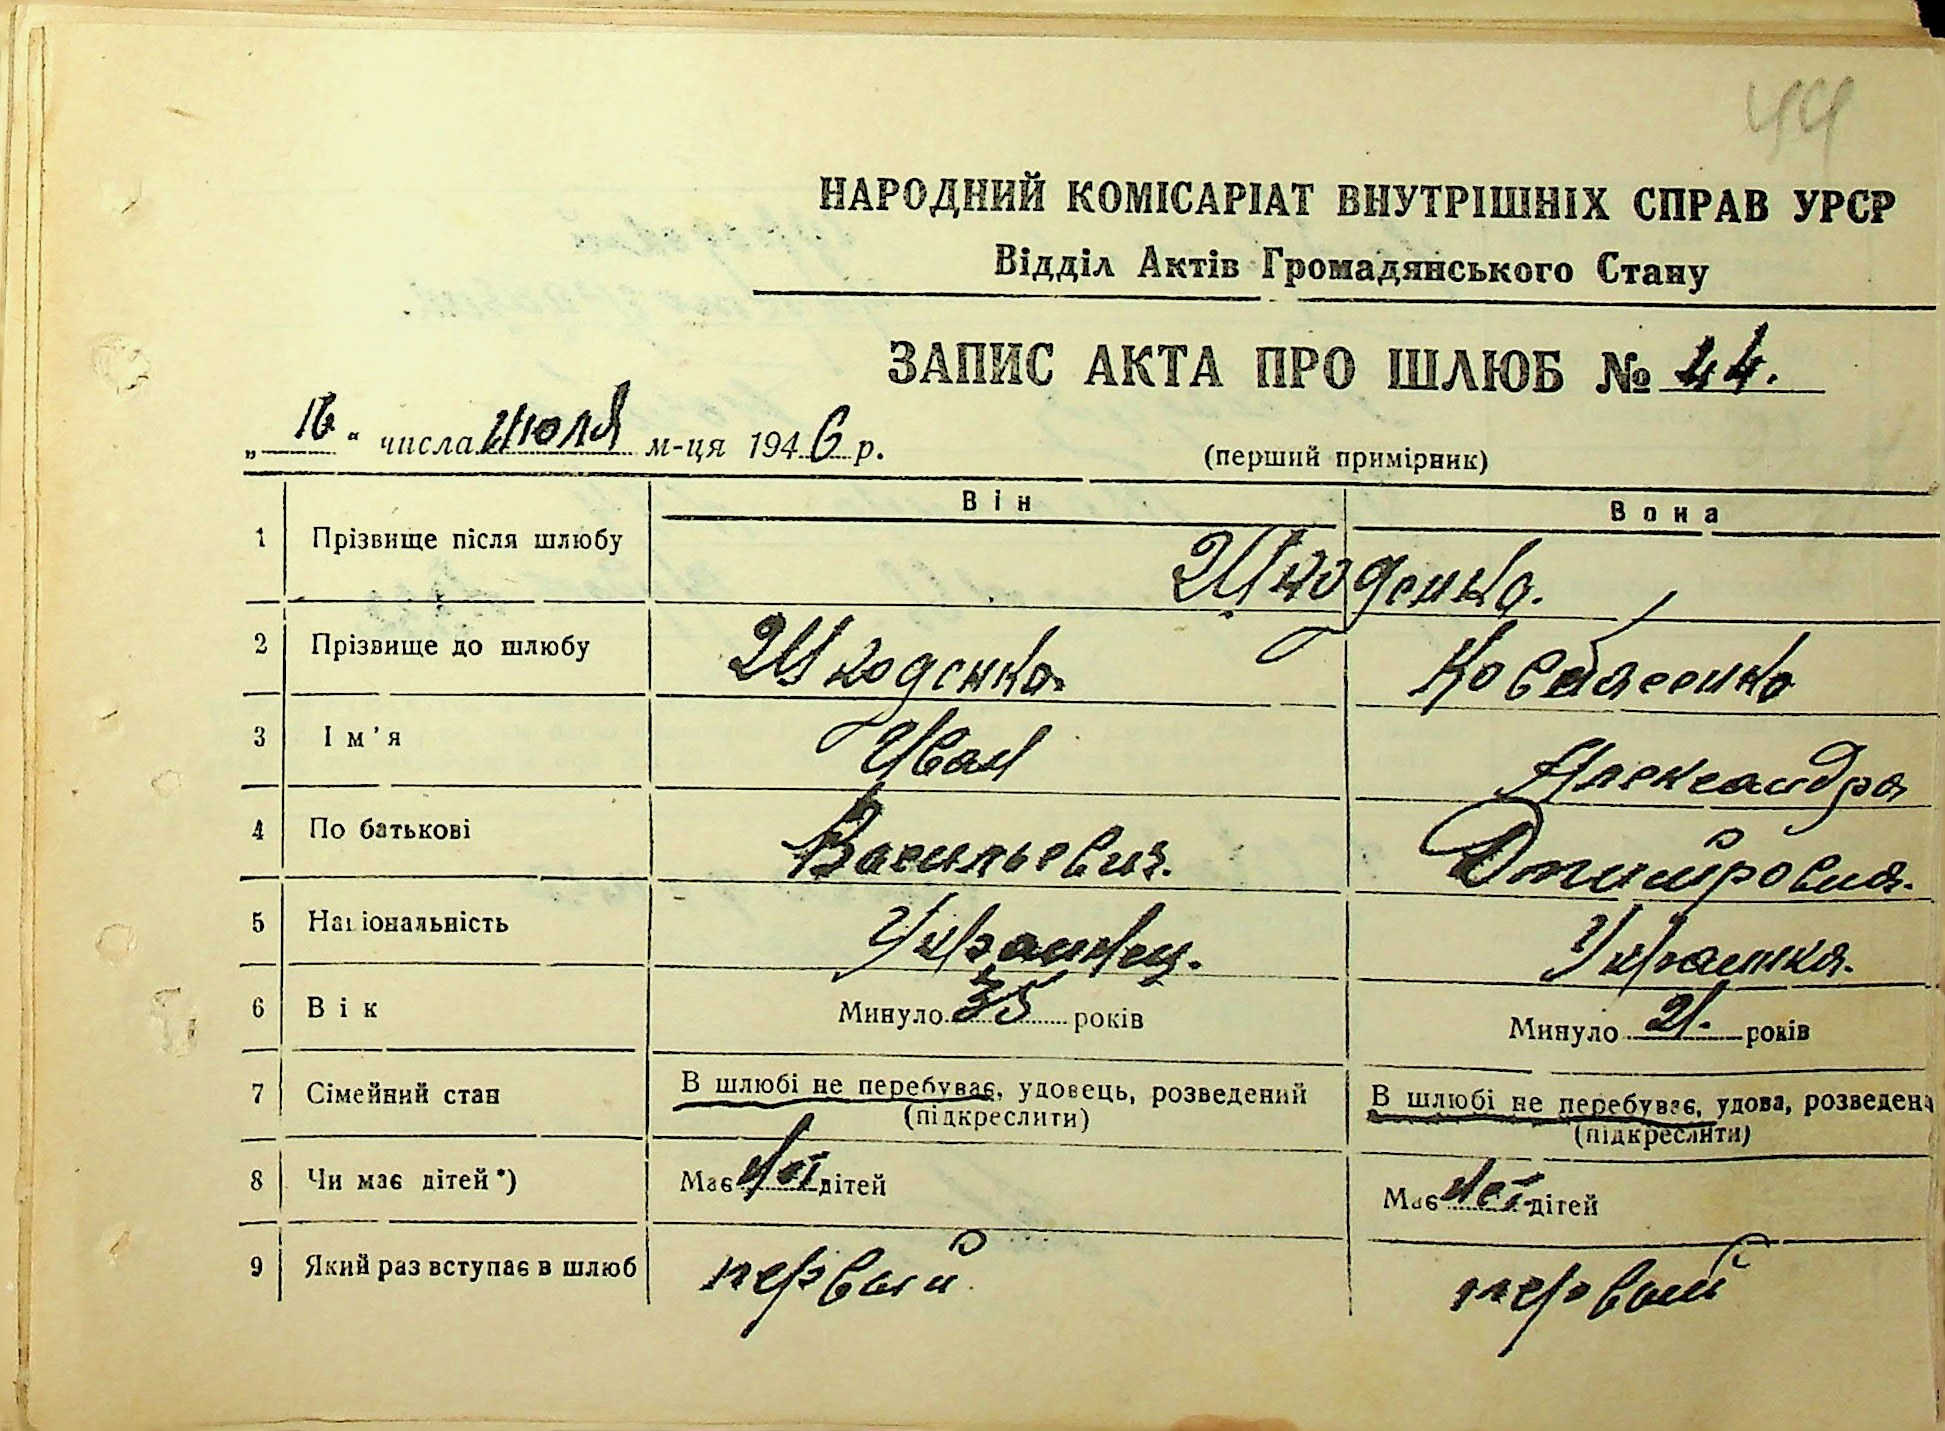 44
НАРОДНИЙ КОМІСАРІАТ ВНУТРІШНІХ СПРАВ УРСР
Відділ Актів Громадянського Стану
ЗАПИС АКТА ПРО ШЛЮБ № 44.
„16“ числа июля м-ця 1946 р.
(перший примірник)
Він Вона
1 Прізвище після шлюбу Шкоденко.
2 Прізвище до шлюбу Шкоденко.
3 Ім'я Иван Александра
4 По батькові Васильевич. Дмитровна.
5 Національність Украинец. Украинка.
6 Вік Минуло 35 років Минуло 21. років
7 Сімейний стан В шлюбі не перебуває, удовець, розведений В шлюбі не перебуває, удова, розведена
(підкреслити) (підкреслити)
8 Чи має дітей*) Має нет дітей Має нет дітей
9 Який раз вступає в шлюб первый первый